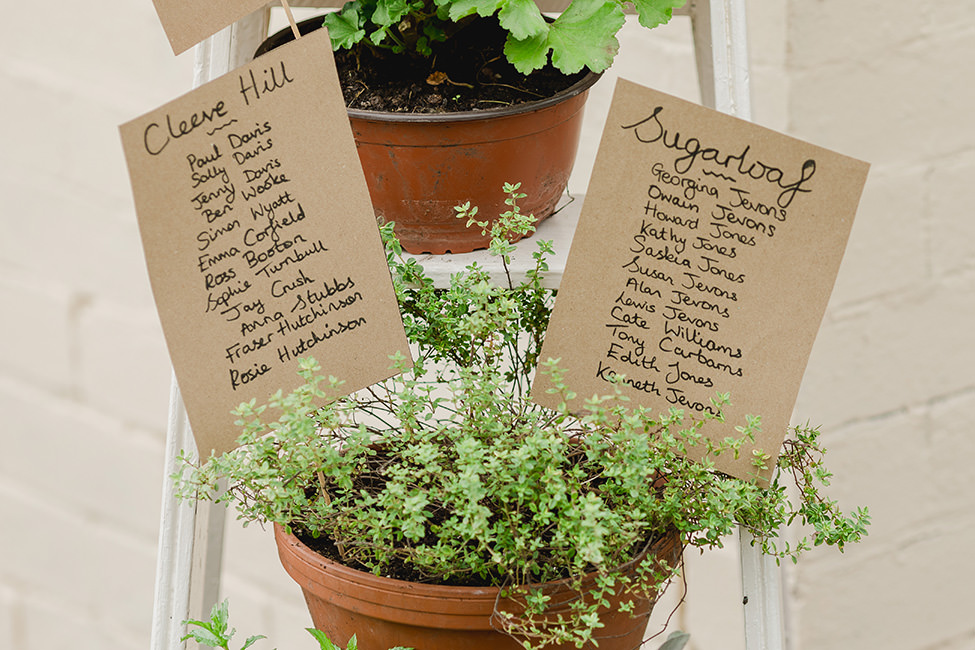 Cleeve Hill
Paul Davis
Sally Davis
Jenny Davis
Ben Woske
Simon Wyatt
Emma Corfield
Ross Booton
Sophie Turnbull
Jay Crush
Anna Stubbs
Fraser Hutchinson
Rosie Hutchinson
Sugarloaf
Georgina Jevons
Owain Jevons
Howard Jones
Kathy Jones
Saskia Jones
Susan Jevons
Alan Jevons
Lewis Jevons
Cate Williams
Tony Carbarns
Edith Jones
Kenneth Jevons